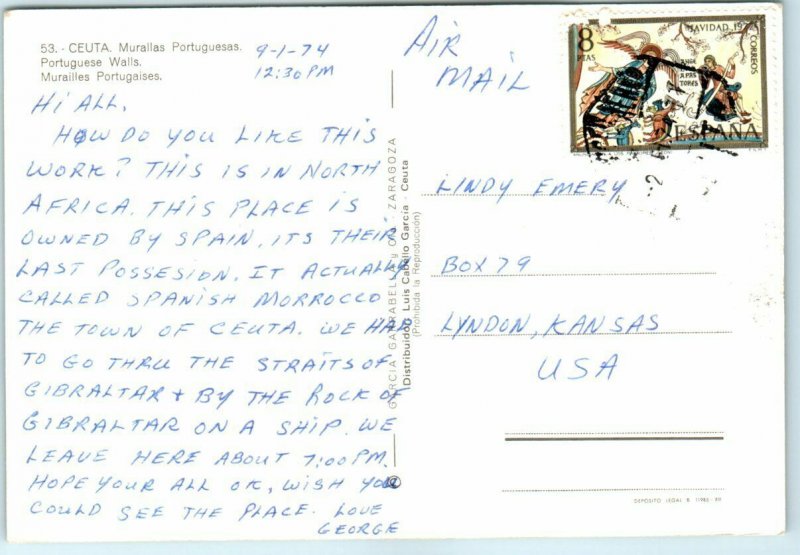 53.- CEUTA. Murallas Portuguesas.
Portuguese Walls.
Murailles Portugaises.
9-1-74
12:30PM
HI ALL.
HOW DO YOU LIKE THIS
WORK? THIS IS IN NORTH
AFRICA. THIS PLACE IS
OWNED BY SPAIN, ITS THEIR
LAST POSSESION. IT ACTUALLY
CALLED SPANISH MORROCCO
THE TOWN OF CEUTA. WE HAD
TO GO THRU THE STRAITS OF
GIBRALTAR & BY THE ROCK OF
GIBRALTAR ON A SHIP. WE
LEAVE HERE ABOUT 7:00 PM.
HOPE YOUR ALL OK, WISH YOU
COULD SEE THE PLACE. LOVE
GEORGE
GARCIA GARRABELLA Y ZARAGOZA
(Distribuidor, Luis Caballo García - Ceuta
(Prohibida la Reproducción)
AIR
MAIL
8
PTAS
NAVIDAD
CORREOS
ESPAÑA
LINDY EMERY
BOX 79
LYNDON, KANSAS
USA
DEPÓSITO LEGAL B.